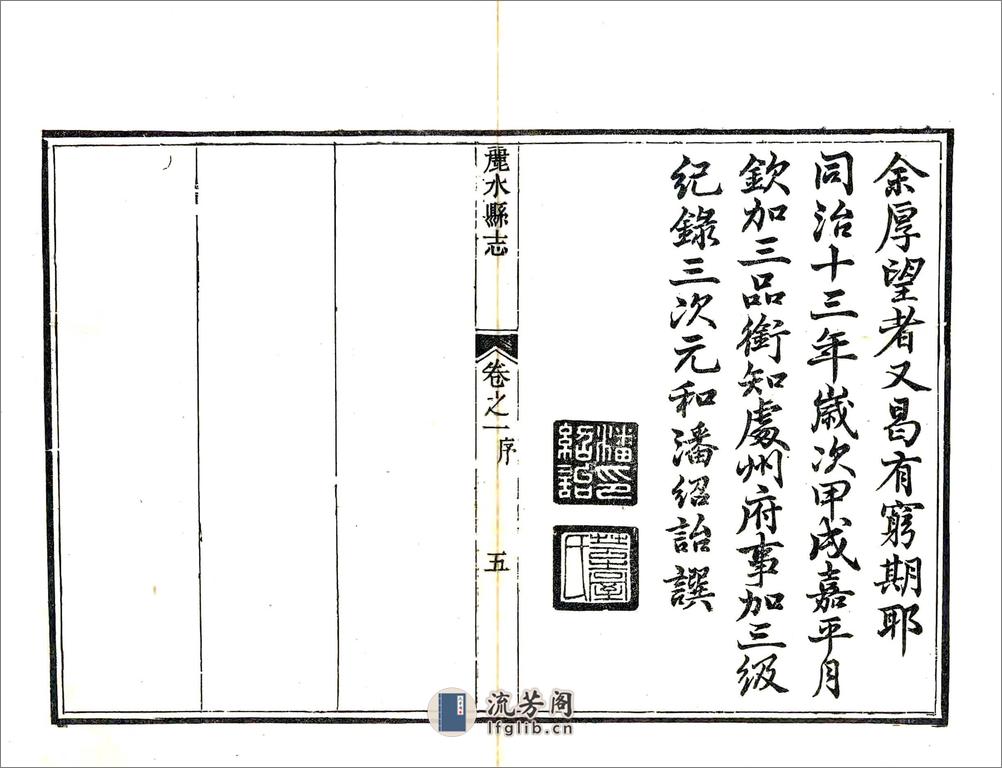 余厚望者又曷有窮期耶
同治十三年歲次甲戌嘉平月
欽加三品銜知處州府事加三級
紀錄三次元和潘紹詒譔
潘印紹詒
麗水縣志
卷之一
序
五
流芳阁
lfglib.cn